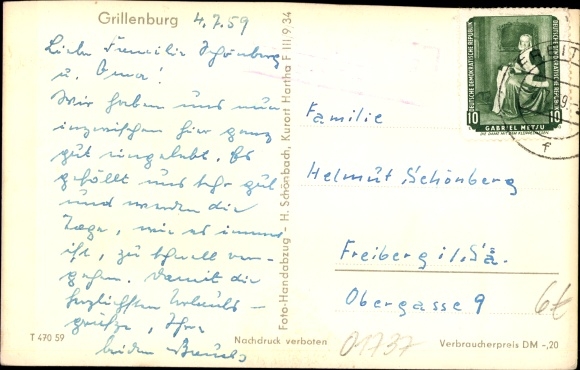 Grillenburg 4.7.59
Liebe Familie Schönberg
u. Oma!
Wir haben uns nun
inzwischen hier ganz
gut eingelebt. Es
gefällt uns sehr gut
und werden die
Tage, wie es immer
ist, zu schnell ver-
gehen. Damit die
herzlichsten Urlaubs-
grüße, Ihre
beiden
T 470 59
Foto-Handabzug - H. Schönbach, Kurort Hartha F III 9.34
Nachdruck verboten
DEUTSCHE DEMOKRATISCHE REPUBLIK
DEUTSCHE DEMOKRATISCHE REPUBLIK
10 10
GABRIEL METSU
f
Familie
Helmut Schönberg
Freiberg i/Sa.
Obergasse 9
6€
01737
Verbraucherpreis DM -,20